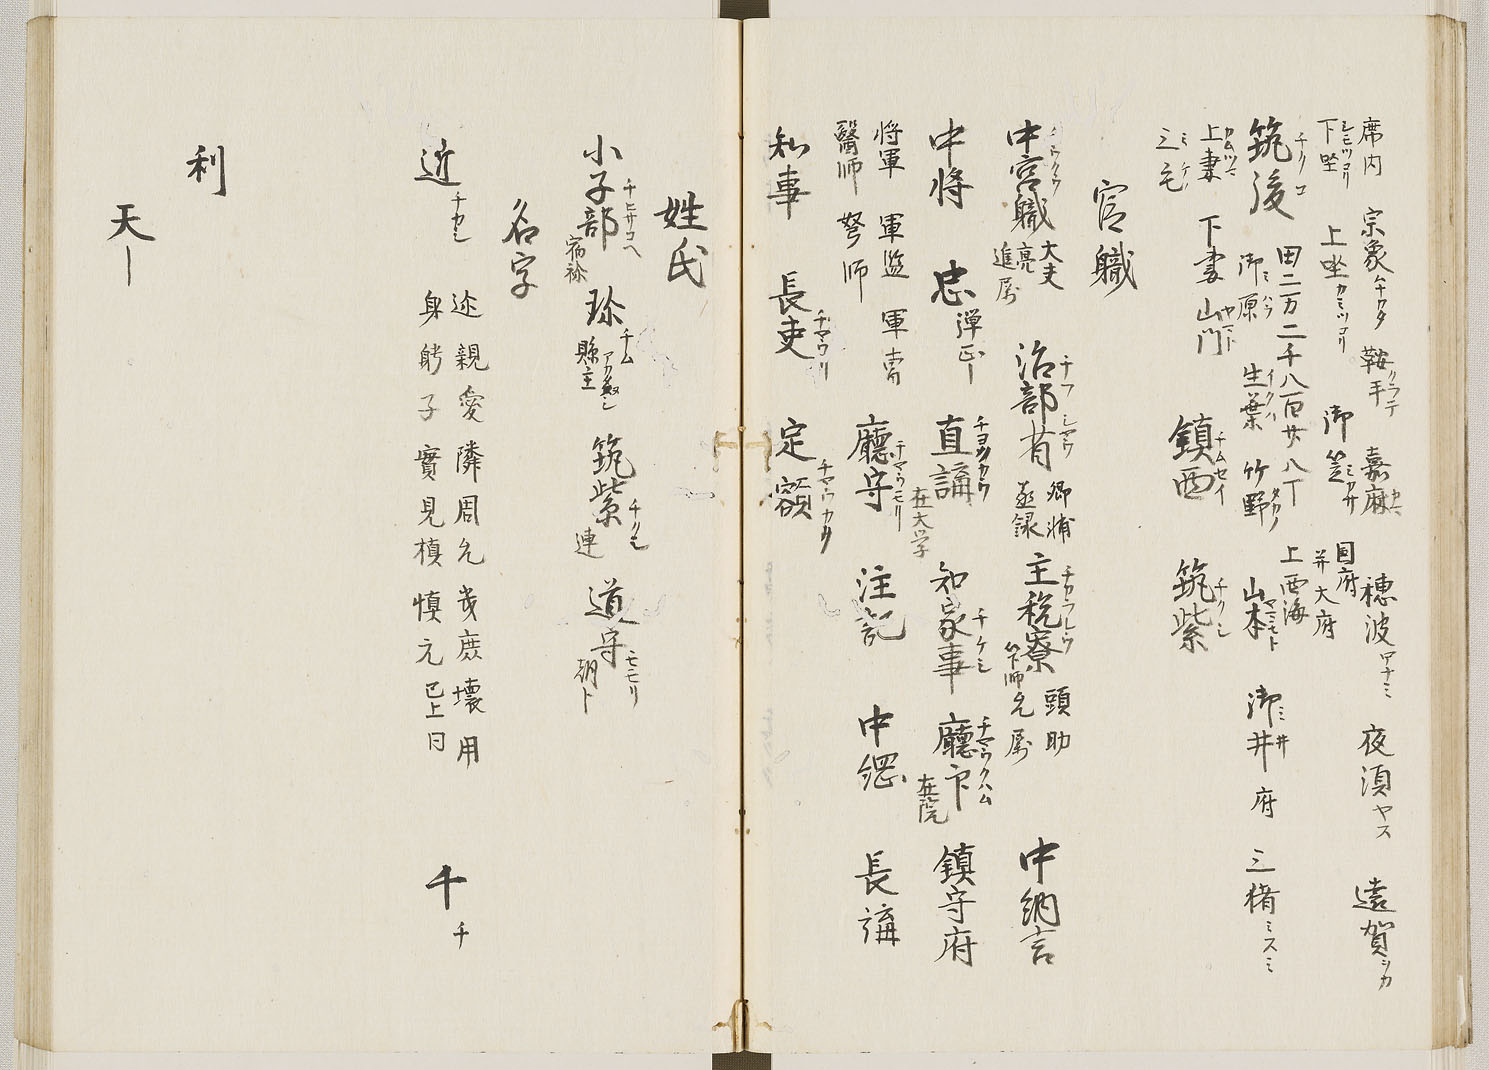 席内 宗象ムナカタ 鞍手クラテ 嘉麻カマ 穂波ホナミ 夜須ヤス 遠賀ヲカ
下坐シモツクラ 上坐カミツクラ 御笠ミカサ 国府并大府 上西海
筑後チクコ 田二万二千八百廿八丁
御原ミハラ 生葉イクハ 竹野タカノ 山本ヤマモト 御井ミ井 府 三猪ミスミ
上妻カムツマ 下妻 山門ヤマト
三毛ミケ 鎮西チムセイ 筑紫チクシ
官職
中宮職 大夫 亮 進 属 治部省 卿 輔 丞 録 主税寮チカラレウ 頭 助 允 属 中納言
中将 忠 弾正― 直講チヨクカウ 在大学 知家事チケシ 廳下 在院 鎮守府
将軍 軍監 軍曹
醫師 弩師 廳守 注記 中綱 長講
知事 長吏チヤウリ 定額チヤウカク
姓氏
小子部チヒサコヘ 宿祢 珎チム 縣主 筑紫チクシ 連 道守モモリ 朝ト
名字
近チカシ 迩親愛隣周允幾庶壞用
身躬子實見槙慎元已上同 千チ
利
天―